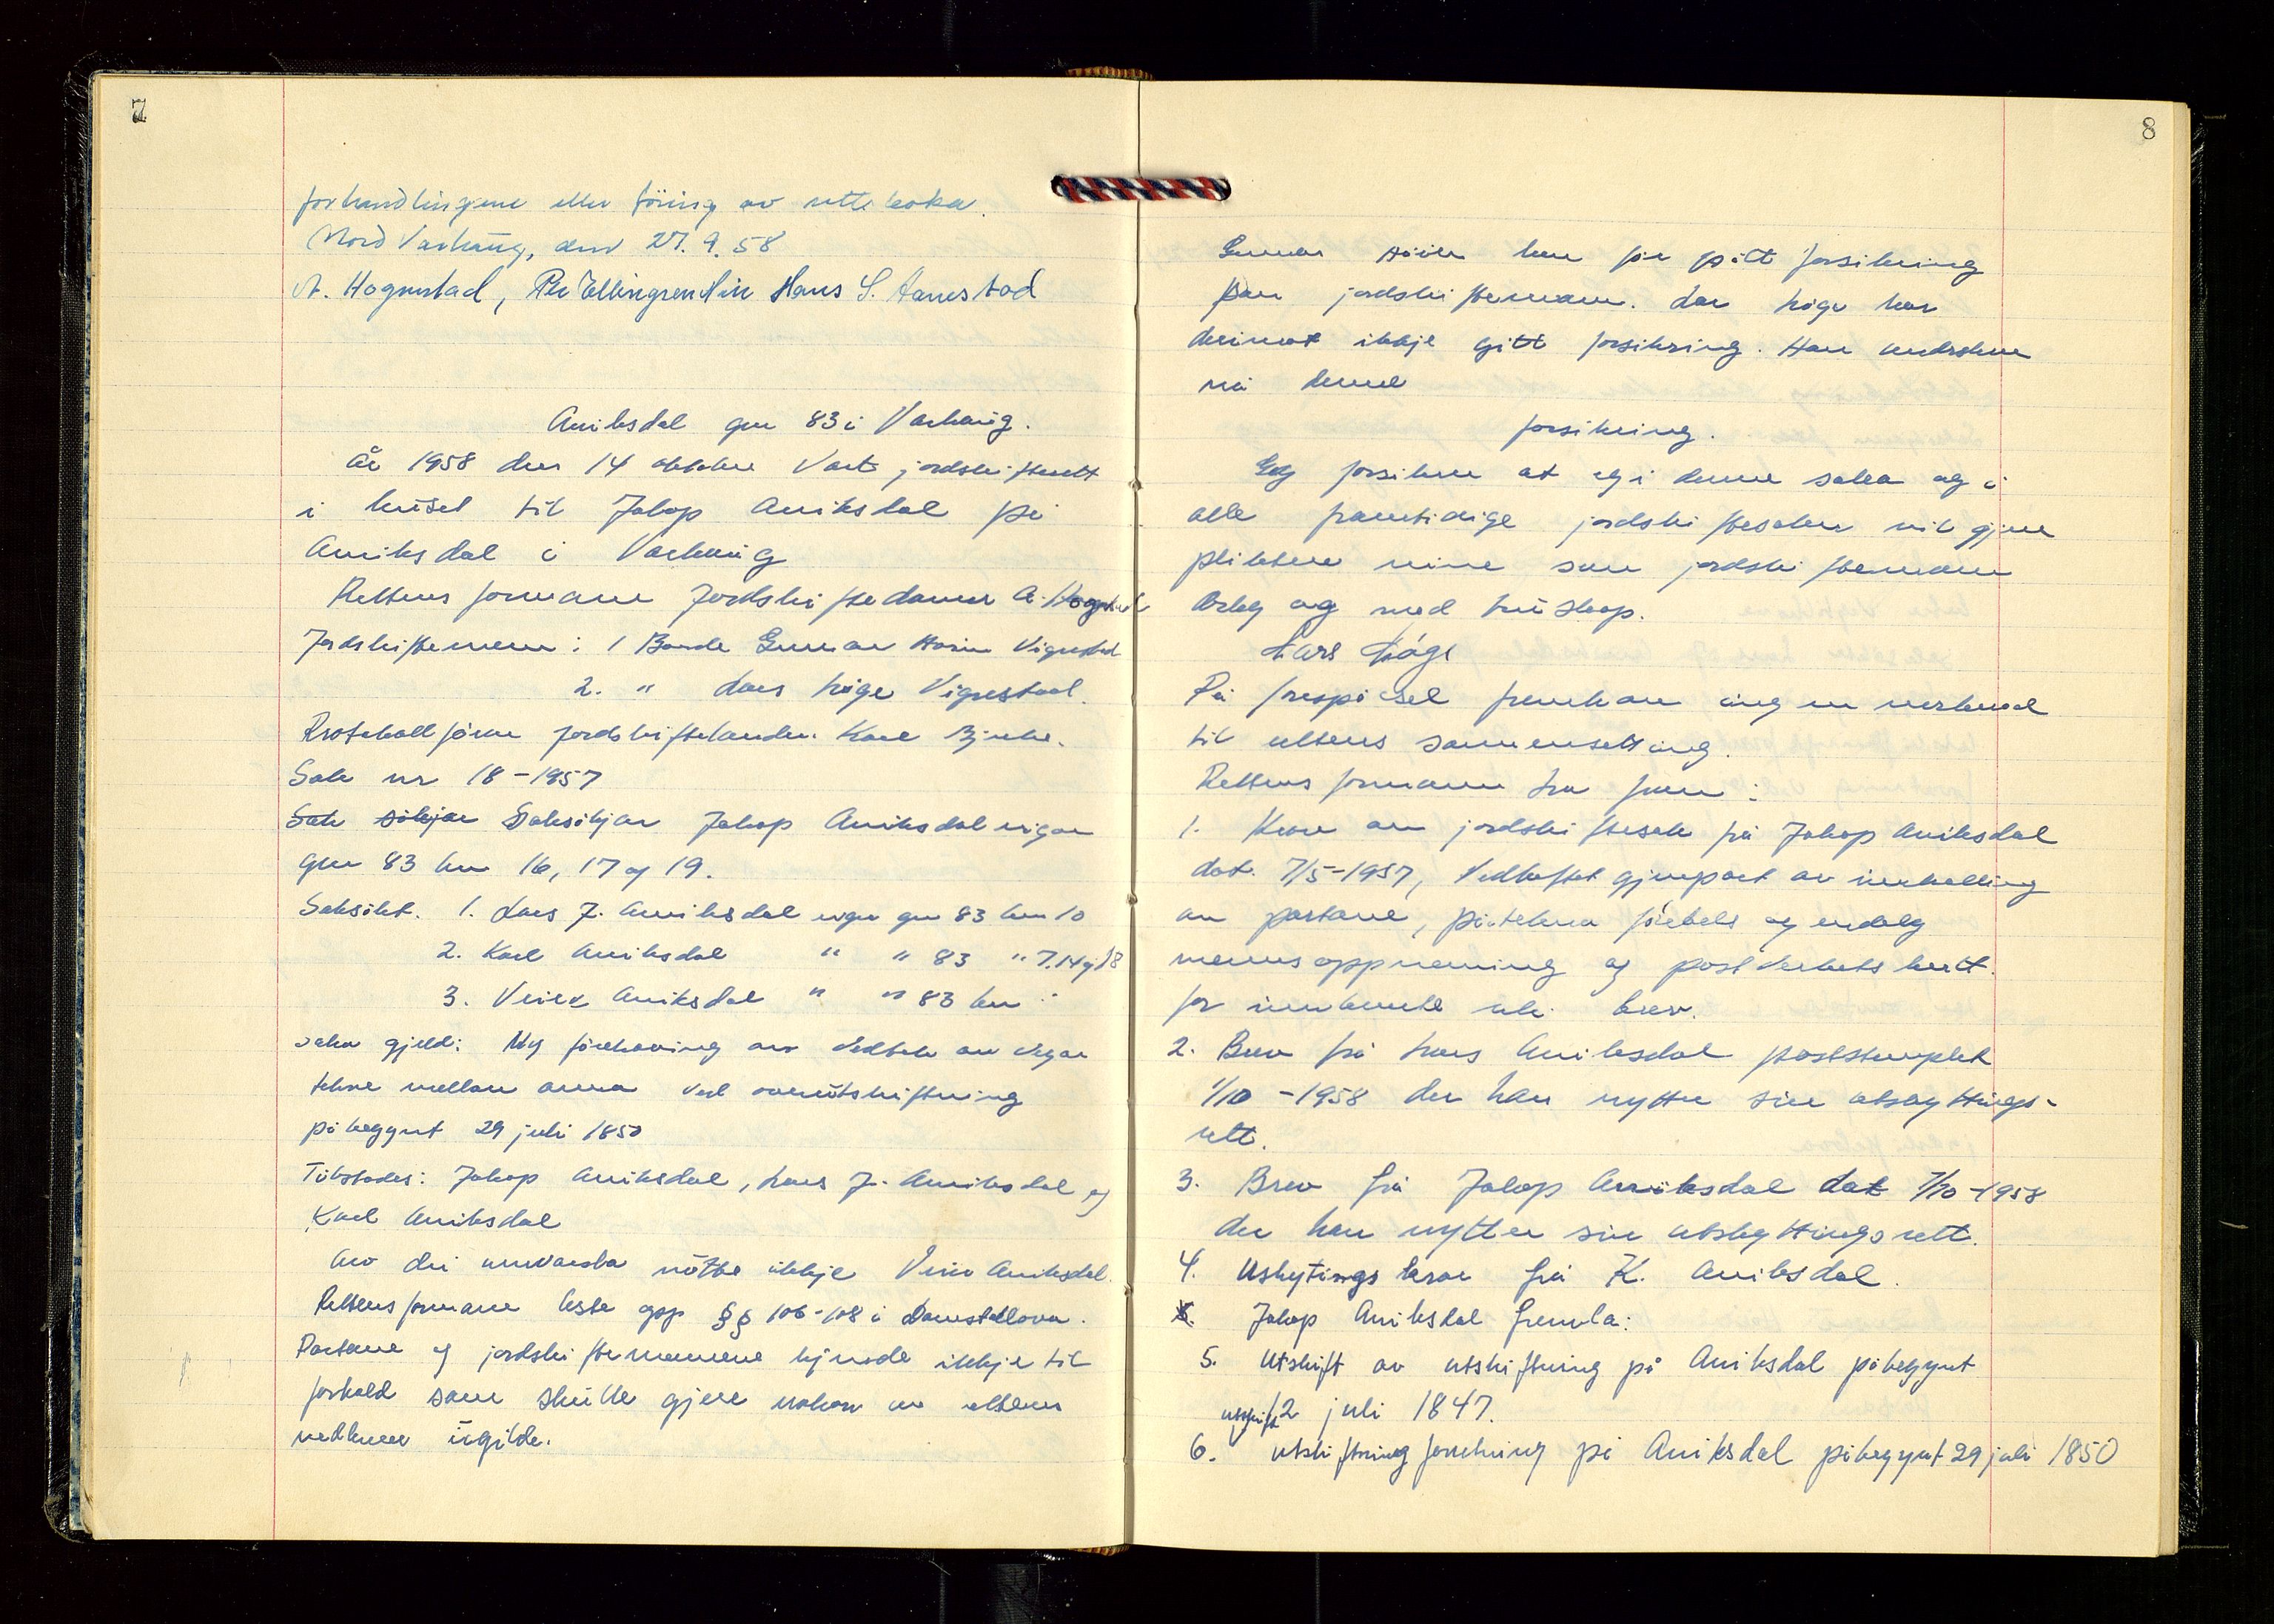 7
forhandlingene eller föring av retteboka.
Nord Varhaug, den 27.9.58
A. Hognestad, Per Ellingsen Lin Hans S. Aanestad
Aniksdal gnr 83 i Varhaug.
År 1958 den 14 oktober Vart jordskifterett
i huset til Jakop Aniksdal på
Aniksdal i Varhaug
Rettens formann Jordskiftedomar A. Hognestad
Jordskiftemenn: 1 Bonde Gunnar Vigrestad
2. " Lars Håge Vigrestad.
Protokollförar jordskiftekandidat Kåre
Sak nr 18-1957
Sak søkjar Saksökjar Jakop Aniksdal eigar
gnr 83 bnr 16, 17 og 19.
Saksökt. 1. Lars J. Aniksdal eigar gnr 83 bnr 10
2. Karl Aniksdal " " 83 " 7.14 og 18
3. Aniksdal " " 83 bnr
Saka gjeld: Ny av vedtak om vegar
mellom anna ved overutskiftning
påbegynt 29 juli 1850
Tilstades: Jakop Aniksdal, Lars J. Aniksdal og
Karl Aniksdal
Av dei innvarsla møtte ikkje Aniksdal.
Rettens formann leste opp §§ 106-108 i Domstollova.
Partane og jordskiftemennene kjende ikkje til
forhold som skulle gjere nokon av rettens
medlemer ugilde.
8
Gunnar har før gitt forsikring
som jordskiftemann. Lars Håge har
derimot ikkje gitt forsikring. Han underskrev
nå denne
forsikring.
Eg forsikrer at eg i denne saka og i
alle framtidige jordskiftesaker vil gjere
pliktene mine som jordskiftemann
ærleg og med truskap.
Lars Håge
På forespørsel framkom ingen merknad
til rettens sammensetting.
Rettens formann la fram:
1. Krav om jordskiftesak frå Jakop Aniksdal
dat. 7/5-1957, Vedheftet gjenpart av innkalling
av partane, påteikna førebels og endeleg
mennsoppnemning og postverkets kvitt.
for innleverte rek. brev.
2. Brev frå Lars Aniksdal poststemplet
1/10-1958 der han nytter sin utskytings-
rett.
3. Brev frå Jakop Aniksdal dat 7/10-1958
der han nytter sin utskyttingsrett.
4. Uskytings krav frå K. Aniksdal.
5. Jakop Aniksdal framla:
5. Utskift av utskiftning på Aniksdal påbegynt
12 juli 1847.
utskift
6. utskiftning forretning på Aniksdal påbegynt 29 juli 1850